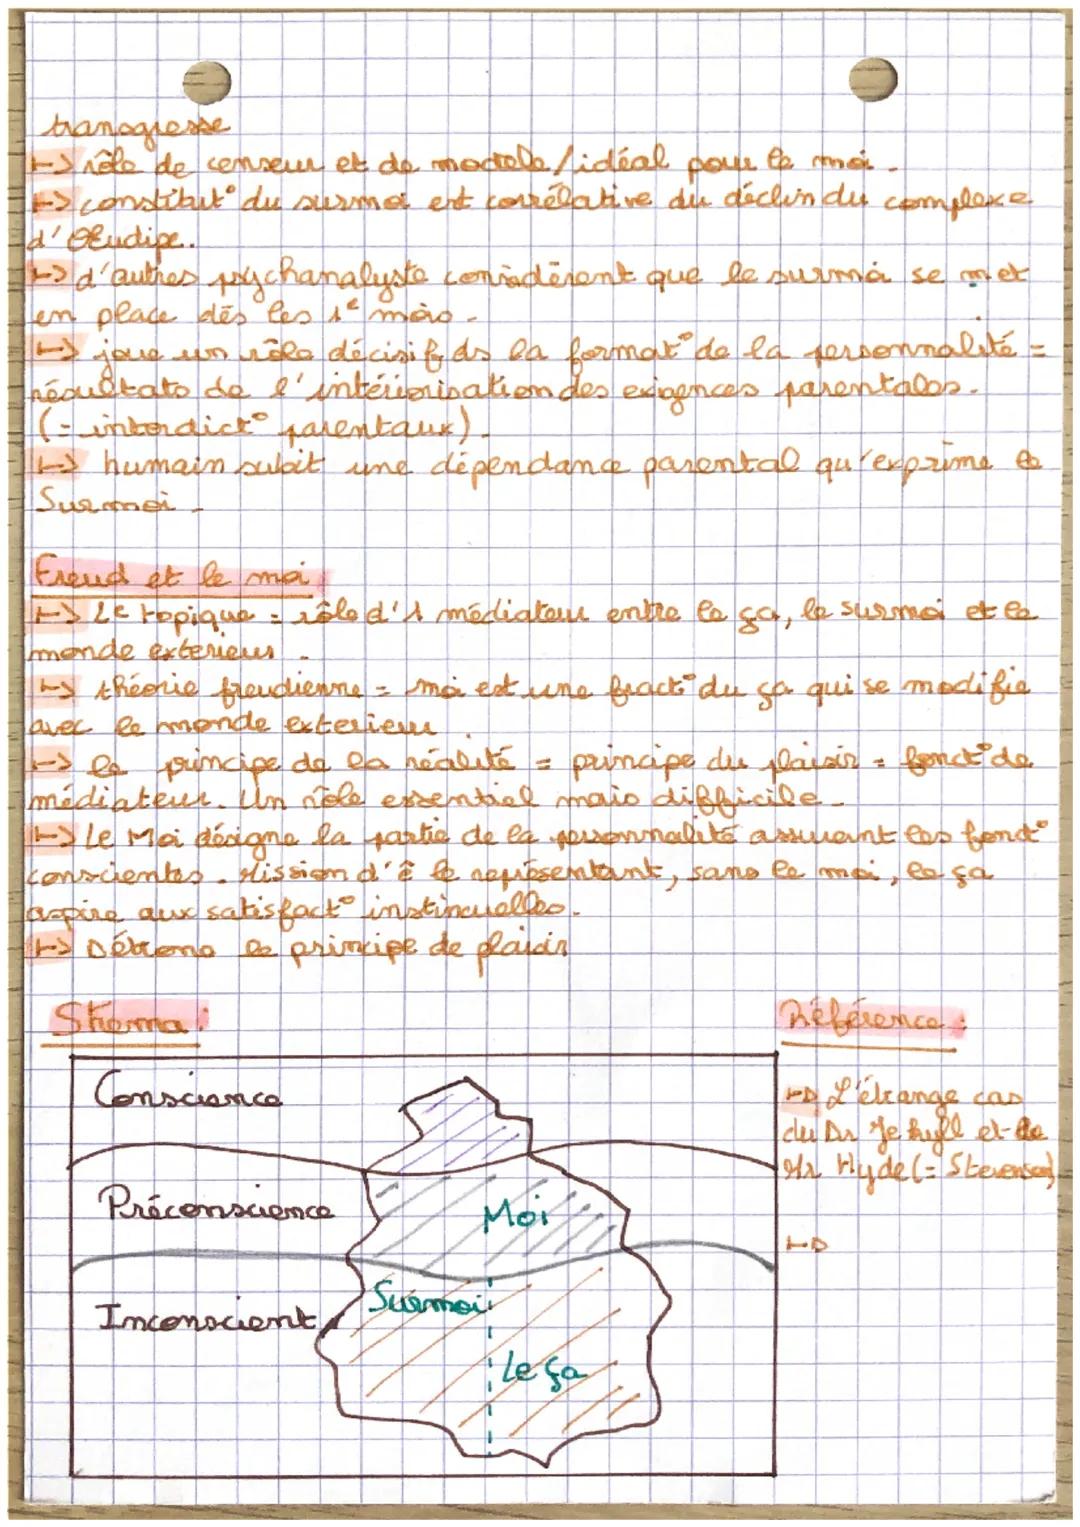 transgresse
↦ rôle de censeur et de modele/idéal pour le moi.
↦ constitut° du surmoi est corrélative du déclin du complexe
d'OEudipe.
↦ d'autres psychanalyste considèrent que le surmoi se met
en place dès les 1e mois.
↦ joue un rôle décisif ds la format° de la personnalité =
résultats de l'intériorisation des exigences parentales.
(= interdict° parentaux).
↦ humain subit une dépendance parental qu'exprime le
Surmoi.
Freud et le moi
↦ 2e topique = rôle d'1 médiateur entre le ça, le surmoi et le
monde exterieurs.
↦ théorie freudienne = moi est une fract° du ça qui se modifie
avec le monde exterieur
↦ le principe de la réalité = principe du plaisir = fonct° de
médiateur. Un rôle essentiel mais difficile.
↦ Le Moi désigne la partie de la personnalité assurant les fonct°
conscientes. Mission d'ê le représentant, sans le moi, le ça
aspire aux satisfact° instincuelles.
↦ Détrono le principe de plaisir
Shema :
Référence :
Conscience
↦ L'étrange cas
du Dr Jekyll et de
Mr Hyde (= Stevenson)
Préconscience
Moi
↦
Surmoi
Inconscient
Le ça